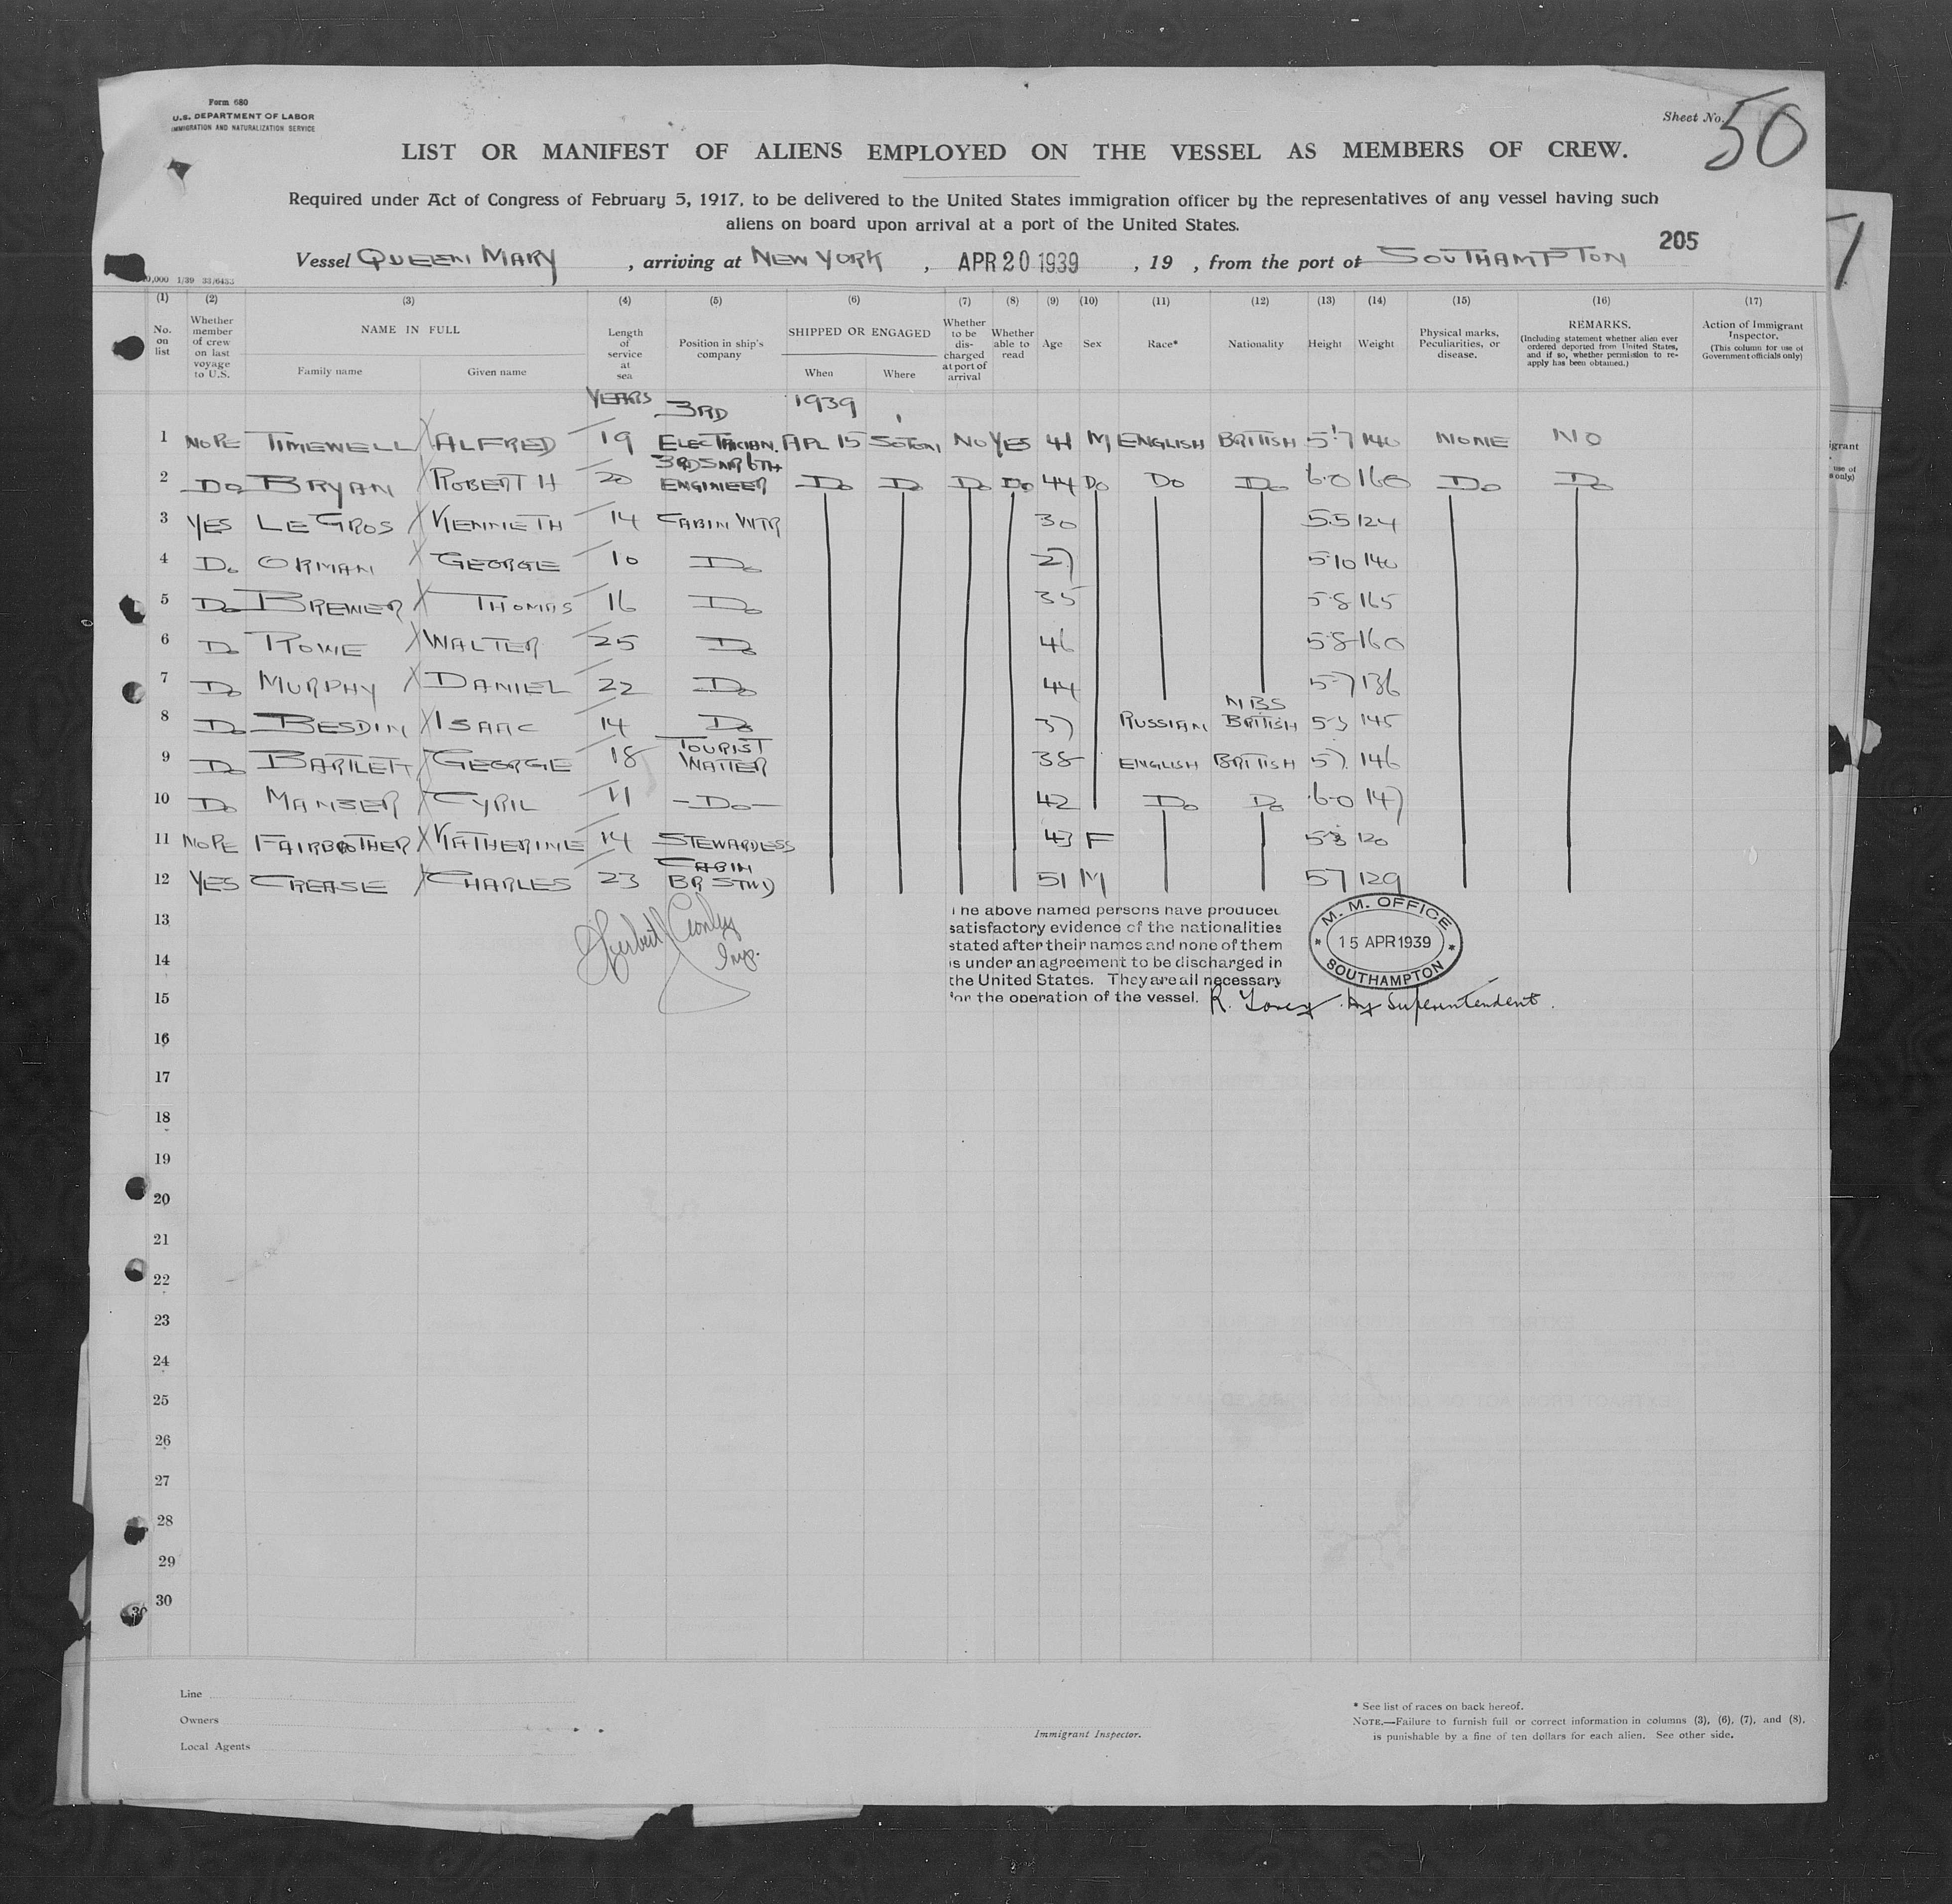 Form 680
U.S. DEPARTMENT OF LABOR
IMMIGRATION AND NATURALIZATION SERVICE
Sheet No. 50
LIST OR MANIFEST OF ALIENS EMPLOYED ON THE VESSEL AS MEMBERS OF CREW.
Required under Act of Congress of February 5, 1917, to be delivered to the United States immigration officer by the representatives of any vessel having such
aliens on board upon arrival at a port of the United States.
205
Vessel QUEEN MARY , arriving at NEW YORK , APR 20 1939 , 19 , from the port of SOUTHAMPTON
0,000 1/39 33/6433
(1) (2) (3) (4) (5) (6) (7) (8) (9) (10) (11) (12) (13) (14) (15) (16) (17)
No. on list Whether member of crew on last voyage to U.S. NAME IN FULL Family name Given name Length of service at sea Position in ship's company SHIPPED OR ENGAGED When Where Whether to be discharged at port of arrival Whether able to read Age Sex Race* Nationality Height Weight Physical marks, Peculiarities, or disease. REMARKS. (Including statement whether alien ever ordered deported from United States, and if so, whether permission to re-apply has been obtained.) Action of Immigrant Inspector. (This column for use of Government officials only)
YEARS 3RD 1939
1 NOPE TIMEWELL ALFRED 19 ELECTRICIAN. APL 15 SOTON NO YES 41 M ENGLISH BRITISH 5'7 140 NONE NO
2 DO BRYAN ROBERT H 20 3RD SNR 6TH ENGINEER DO DO DO DO 44 DO DO DO 6-0 160 DO DO
3 YES LE GROS KENNETH 14 CABIN WTR 30 5.5 124
4 DO ORMAN GEORGE 10 DO 27 5-10 140
5 DO BREWER THOMAS 16 DO 35 5-8 165
6 DO ROWE WALTER 25 DO 46 5-8 160
7 DO MURPHY DANIEL 22 DO 44 5-7 136
8 DO BESDIN ISAAC 14 DO 37 RUSSIAN NBS BRITISH 5-3 145
9 DO BARTLETT GEORGE 18 TOURIST WAITER 38 ENGLISH BRITISH 5 7. 146
10 DO MANSER CYRIL 11 -DO- 42 DO DO 6-0 147
11 NOPE FAIRBROTHER KATHERINE 14 STEWARDESS 43 F 5-3 120
12 YES CREASE CHARLES 23 CABIN BR STWD 51 M 57 129
13
14
15
Herbert Conley
Insp.
The above named persons have produced
satisfactory evidence of the nationalities
stated after their names and none of them
is under an agreement to be discharged in
the United States. They are all necessary
for the operation of the vessel. R. Superintendent.
M. M. OFFICE
15 APR 1939
SOUTHAMPTON
16
17
18
19
20
21
22
23
24
25
26
27
28
29
30
Line
Owners
Local Agents
Immigrant Inspector.
* See list of races on back hereof.
NOTE.—Failure to furnish full or correct information in columns (3), (6), (7), and (8),
is punishable by a fine of ten dollars for each alien. See other side.